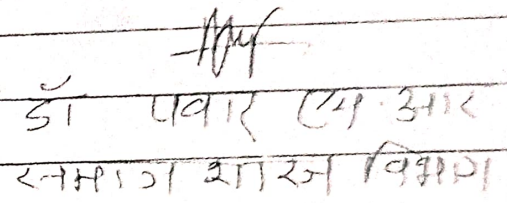 डॉ पवार एम. आर
समाज शास्त्र विभाग